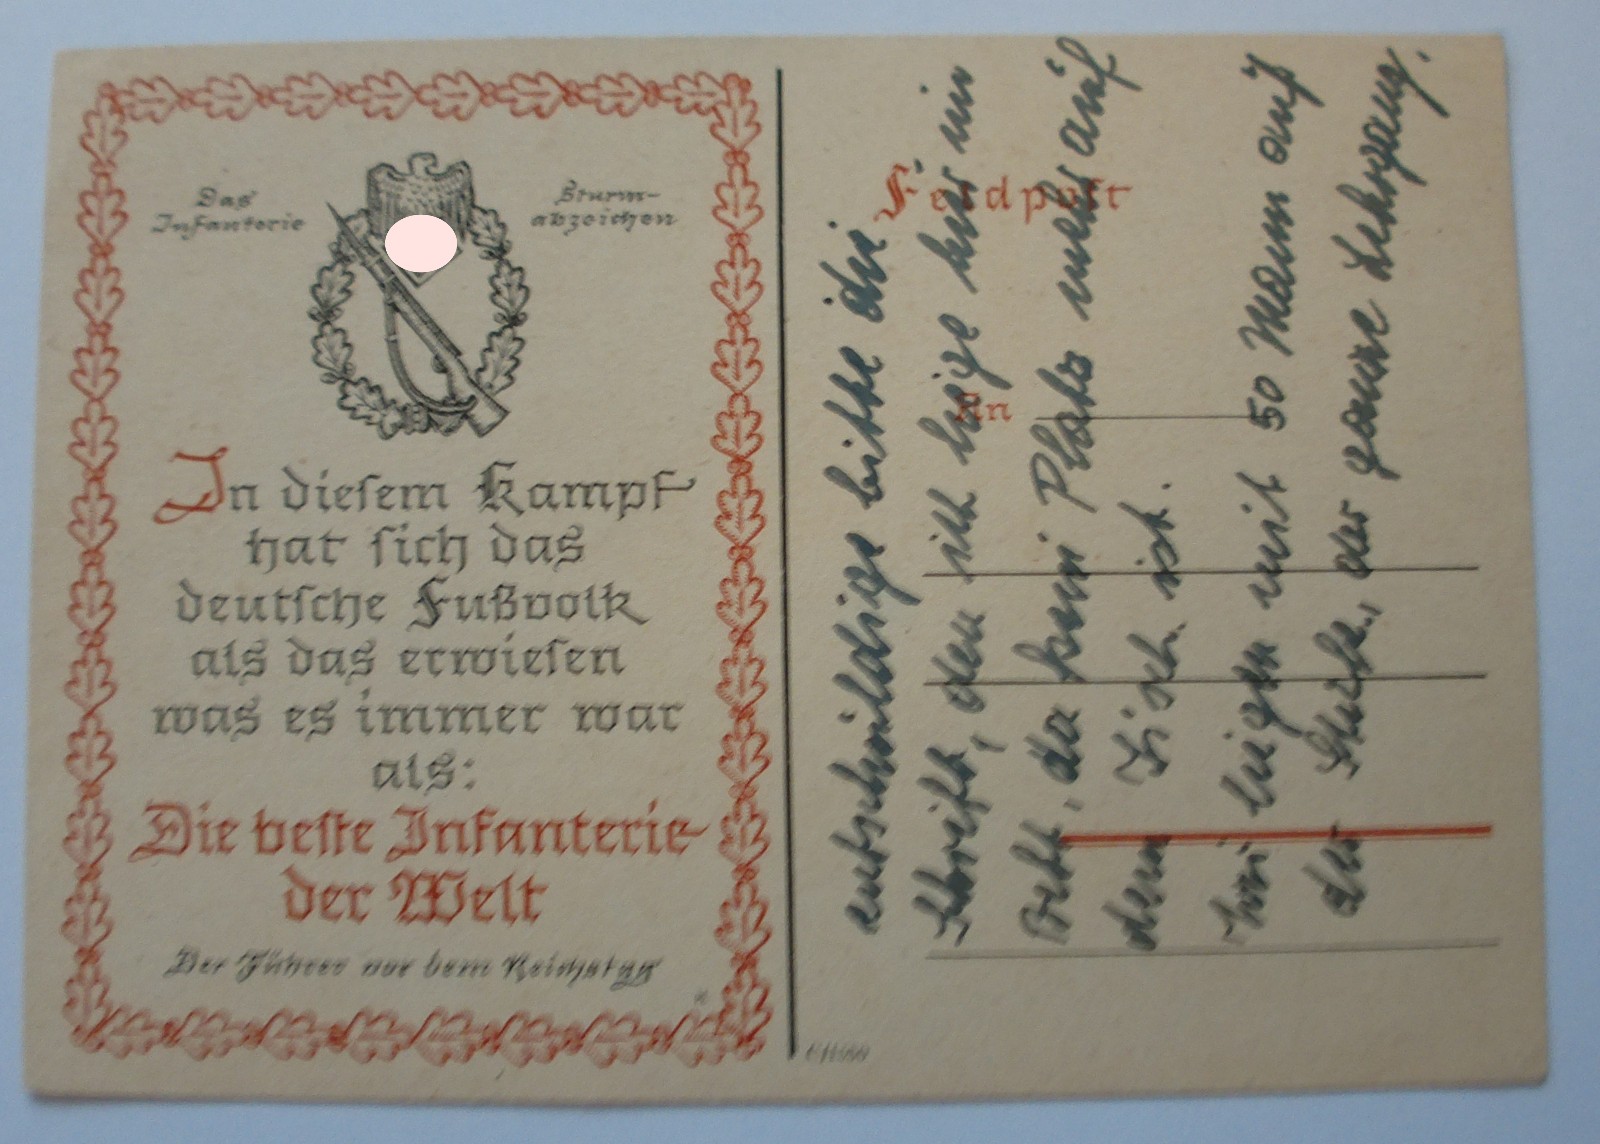 Das
Infanterie
Sturm-
abzeichen
In diesem Kampf
hat sich das
deutsche Fußvolk
als das erwiesen
was es immer war
als:
Die beste Infanterie
der Welt
Der Führer vor dem Reichstag
Feldpost
An
entschuldige bitte die
Schrift, den ich liege hir im
Bett, da kein Platz mehr auf
dem Tisch ist.
Wir liegen mit 50 Mann auf
der Stube, der ganze Lehrgang.